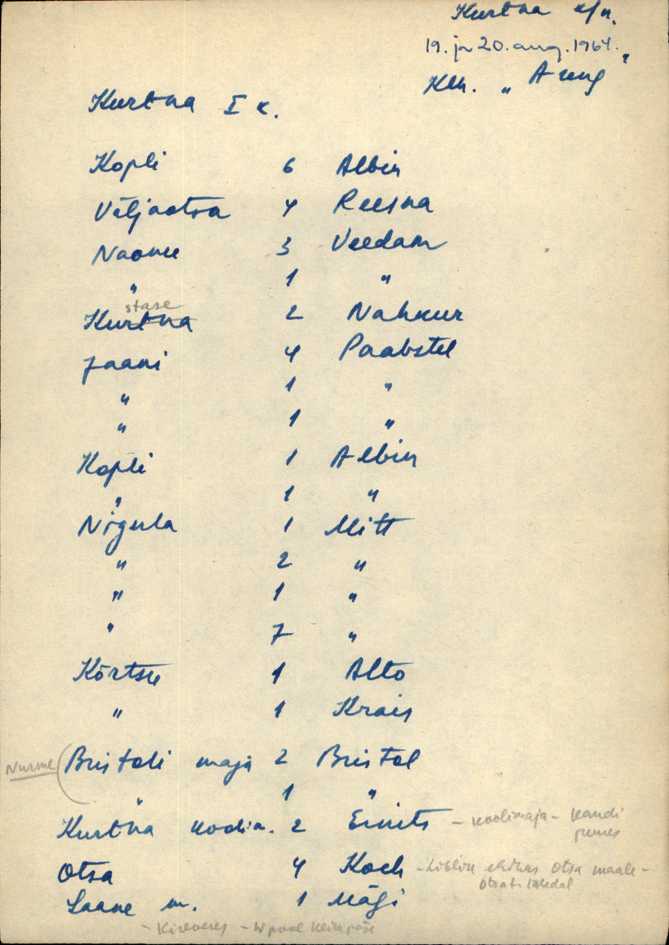 Kurtna k/n.
19. ja 20. aug. 1964.
Kh. "Areng"
Kurtna I k.
Kopli 6 Albin
Väljaotsa 4 Reesna
Naome 3 Veedam
" 1 "
stase
Kurtna 2 Nahkur
Jaani 4 Paabstel
" 1 "
" 1 "
Kopli 1 Albin
" 1 "
Nõgula 1 Mitt
" 2 "
" 1 "
" 7 "
Kõrtsu 1 Alto
" 1 Krais
Nurme (Bristoli maja 2 Bristol
" 1 "
Kurtna 2 Einits - koolimaja - Kandi
Otsa 4 Koch - ehitas Otsa maale -
Saare m. 1 Mägi